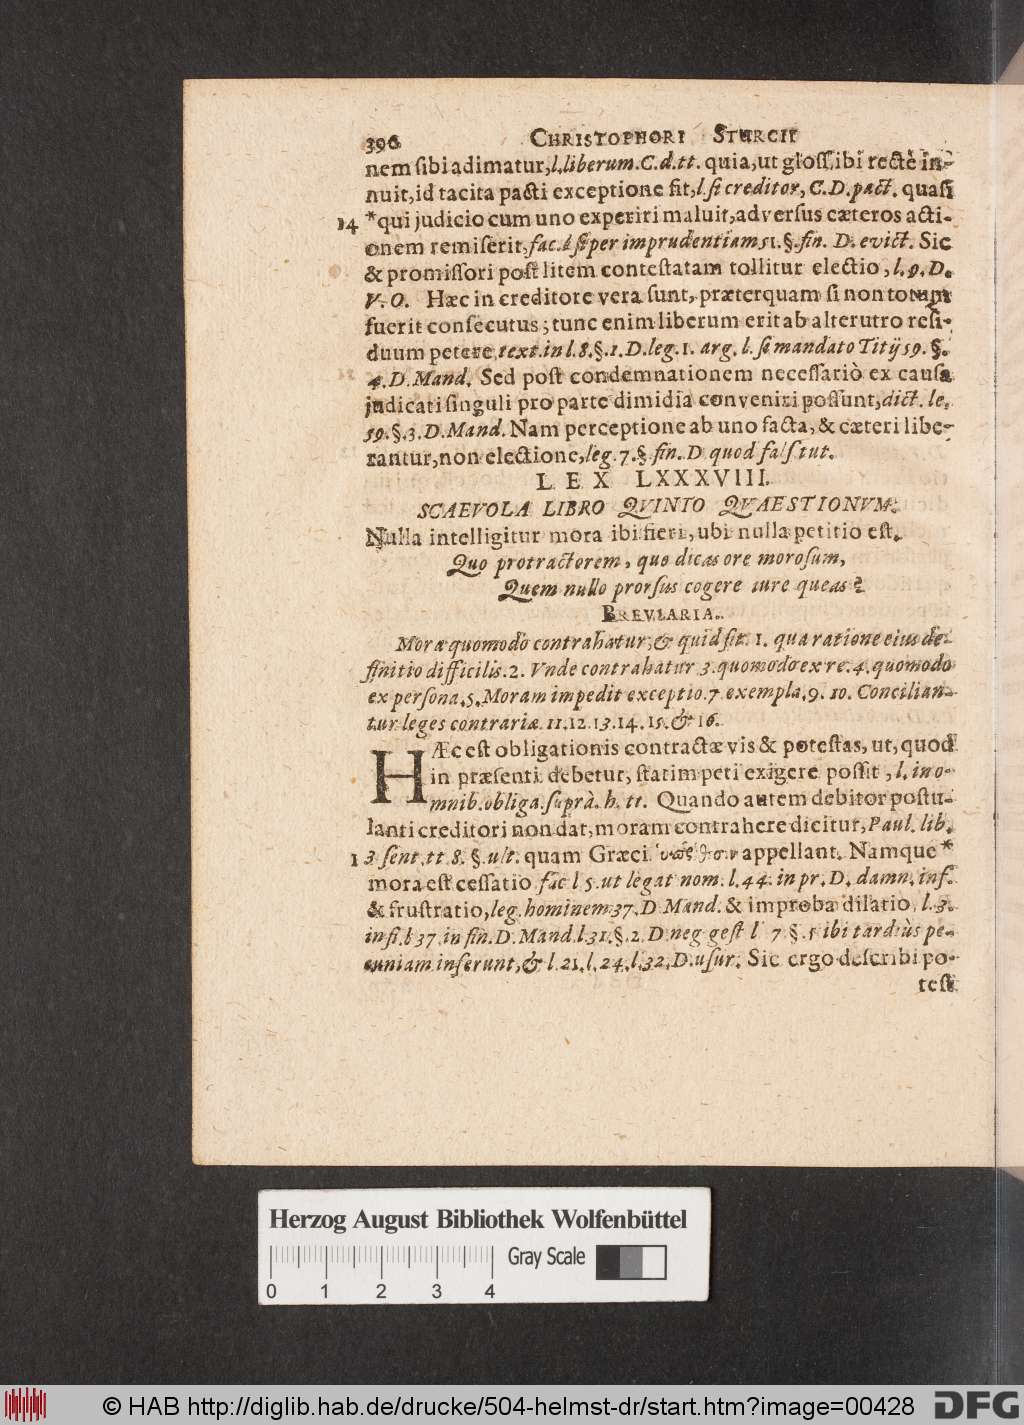 396 CHRISTOPHORI STURCII
nem sibi adimatur, l. liberum. C. d. tt. quia, ut gloss. ibi rectè in-
nuit, id tacita pacti exceptione fit, l. si creditor, C. D. pact. quasi
14 * qui judicio cum uno experiri maluit, adversus cæteros acti-
onem remiserit, fac. l si per imprudentiam 51. §. fin. D. evict. Sic
& promissori post litem contestatam tollitur electio, l. 9. D.
V. O. Hæc in creditore vera sunt, præterquam si non totum
fuerit consecutus; tunc enim liberum erit ab alterutro resi-
duum petere text. in l. 8. §. 1. D. leg. 1. arg. l. si mandato Titij 59. §.
4. D. Mand. Sed post condemnationem necessariò ex causa
judicati singuli pro parte dimidia conveniri possunt, dict. le.
59. §. 3. D. Mand. Nam perceptione ab uno facta, & cæteri libe-
rantur, non electione, leg. 7. §. fin. D quod fals tut.
LEX LXXXVIII.
SCAEVOLA LIBRO QVINTO QVAESTIONVM.
Nulla intelligitur mora ibi fieri, ubi nulla petitio est.
Quo protractorem, quo dicas ore morosum,
Quem nullo prorsus cogere iure queas?
BREVIARIA.
Moræ quomodo contrahatur, & quid sit. 1. qua ratione eius de-
finitio difficilis. 2. Vnde contrahatur 3. quomodo ex re. 4. quomodo
ex persona. 5. Moram impedit exceptio. 7 exempla. 9. 10. Concilian-
tur leges contrariæ 11. 12. 13. 14. 15. & 16.
HÆc est obligationis contractæ vis & potestas, ut, quod
in præsenti debetur, statim peti exigere possit, l. in o-
mnib. obliga. suprà. h. tt. Quando autem debitor postu-
lanti creditori non dat, moram contrahere dicitur, Paul. lib.
1 3 sent. tt 8. §. ult. quam Græci appellant. Namque *
mora est cessatio fac l 5. ut legat nom. l. 44. in pr. D. damn. inf.
& frustratio, leg. hominem 37. D Mand. & improba dilatio, l. 3.
in fi. l 37. in fin. D. Mand. l 31. §. 2. D neg gest l 7 §. 5 ibi tardiùs pe-
cuniam inserunt, & l. 21. l. 24. l. 32. D. usur. Sic ergo describi po-
test
Herzog August Bibliothek Wolfenbüttel
Gray Scale
0 1 2 3 4
© HAB http://diglib.hab.de/drucke/504-helmst-dr/start.htm?image=00428 DFG